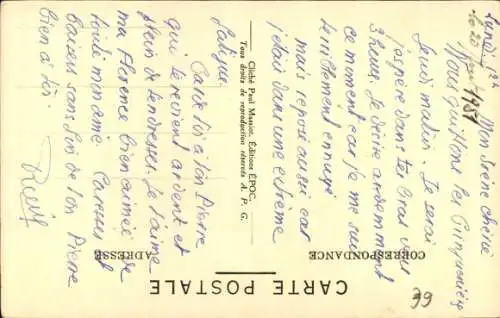 Lundi 1
1937
Mon Irène chérie
Nous quittons les
Jeudi matin. Je serai
j'espère dans tes bras vers
3 heures. Je désire ardemment
ce moment car je me suis
terriblement ennuyé
mais reposé aussi car
j'étais dans une extrême
fatigue.
Garde toi à ton Pierre
qui te revient ardent et
plein de tendresses. Je t'aime
ma Florence bien aimée de
toute mon âme. Caresses et
baisers sans fin de ton Pierre
bien à toi.
Cliché Paul Editions EPOC.
Tous droits de reproduction réservés A. P. G.
CORRESPONDANCE
ADRESSE
CARTE POSTALE
39